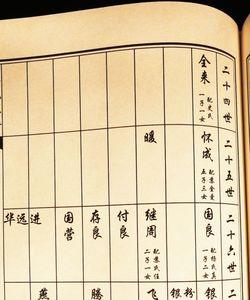 二十四世
全来
配史氏
一子一女
二十五世
怀成
配袁金爱
五子三女
暖
二十六世
国良
配杨氏英
一子二女
继周
配袁氏任
二子一女
付良
存良
国营
进
远
华
二
粉
银
银
飞
腾
燕